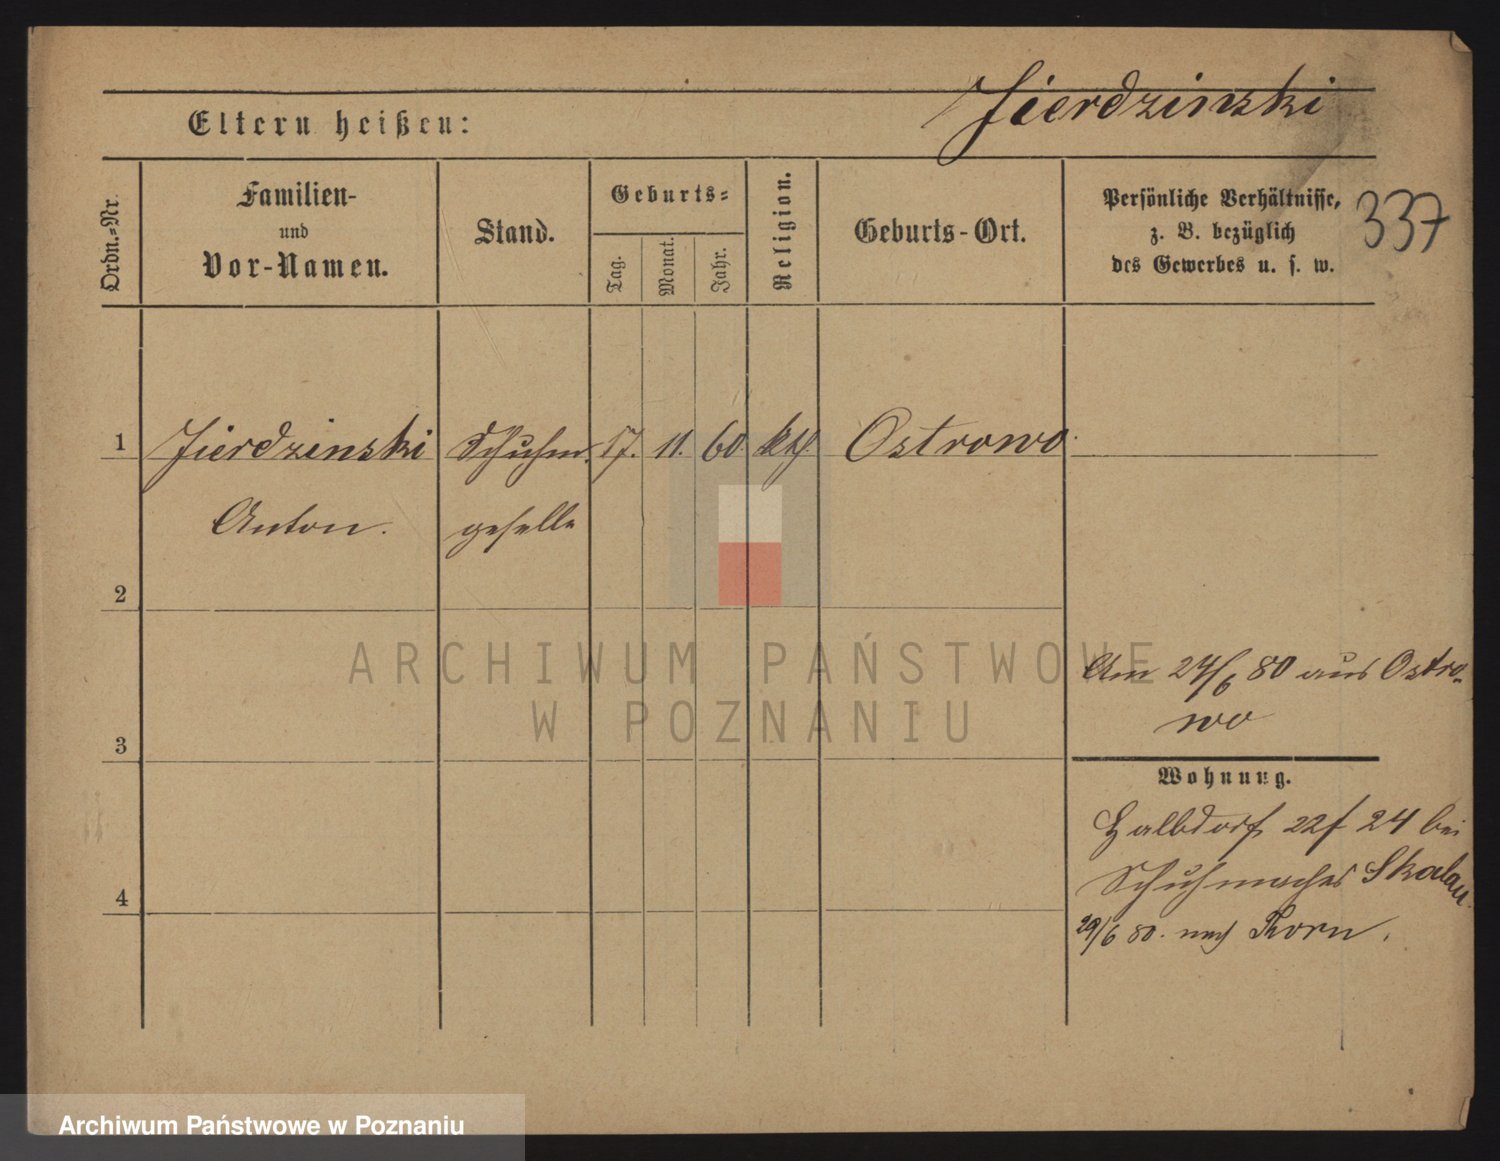 Jierdzinski
Eltern heißen:
337
Ordn.=Nr.
Familien-
und
Vor-Namen.
Stand.
Geburts=
Tag.
Monat.
Jahr.
Religion.
Geburts-Ort.
Persönliche Verhältnisse,
z. B. bezüglich
des Gewerbes u. s. w.
1 Jierdzinski Schuhm. 17. 11. 60. kth. Ostrowo.
Anton. geselle
2
ARCHIWUM PAŃSTWOWE
W POZNANIU
Am 24/6 80 aus Ostro-
wo
3
Wohnung.
Halbdorf 22/ 24 bei
Schuhmacher Skalau
4
29/6 80. nach Thorn.
Archiwum Państwowe w Poznaniu